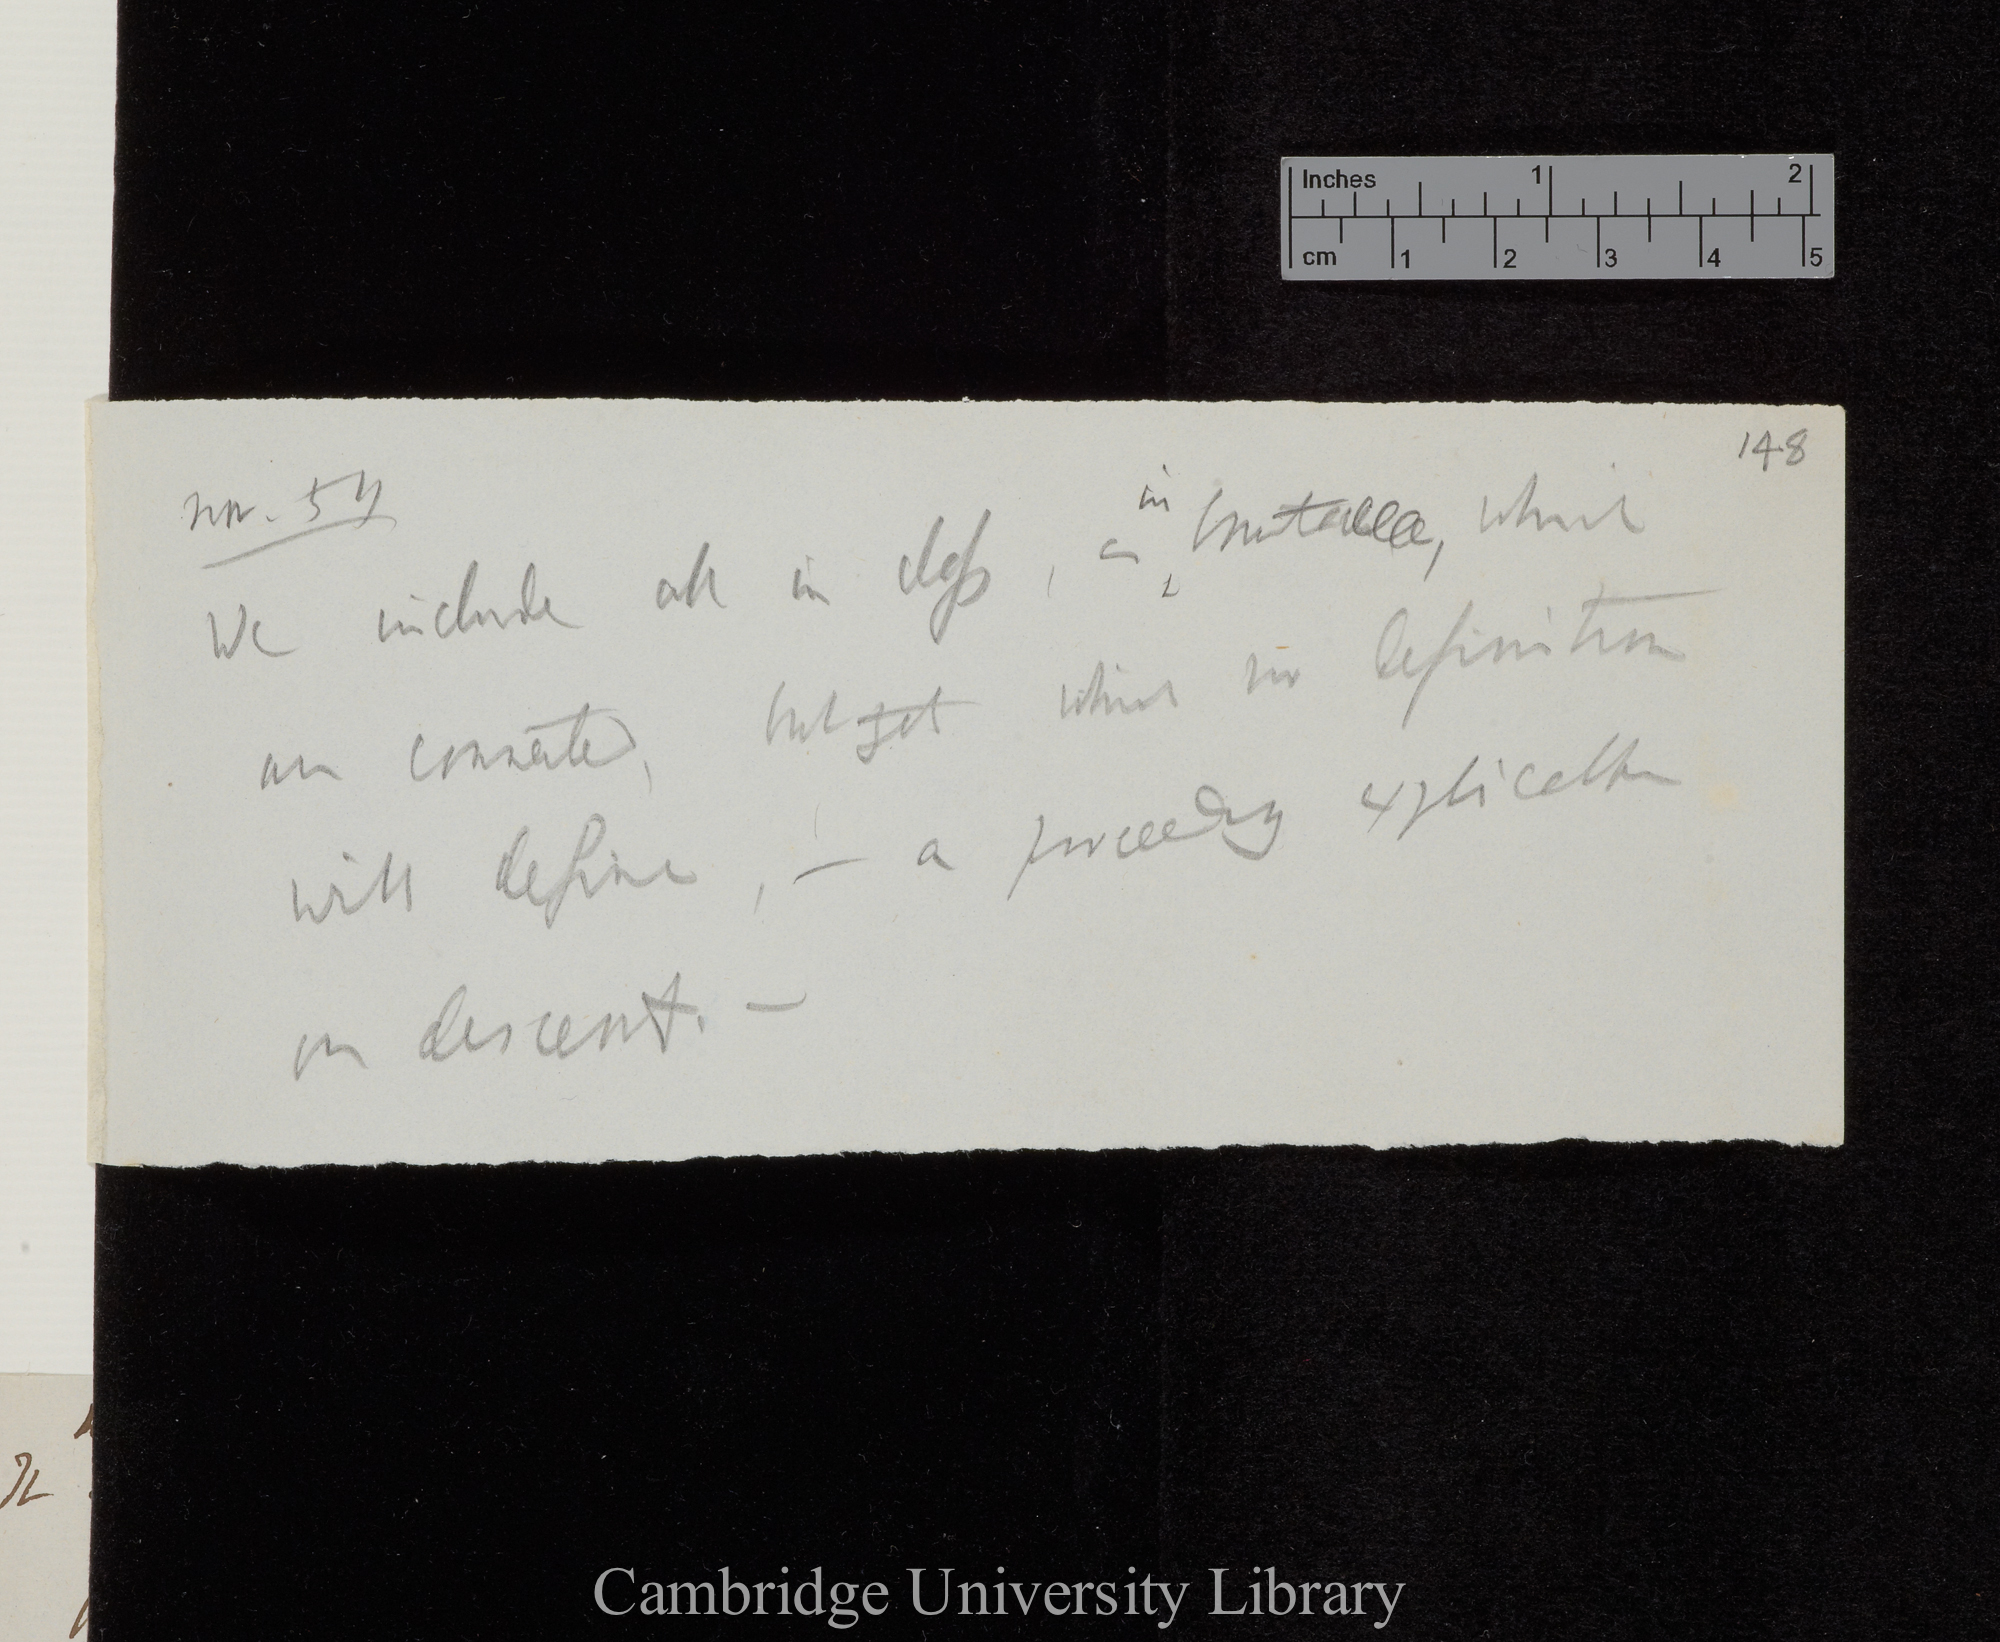 148
Nov. 54
We include all in class, as in Crustacea, which
are connected, but yet which no definition
will define, — a proceeding explicable
on descent. —
Inches 1 2
cm 1 2 3 4 5
Cambridge University Library